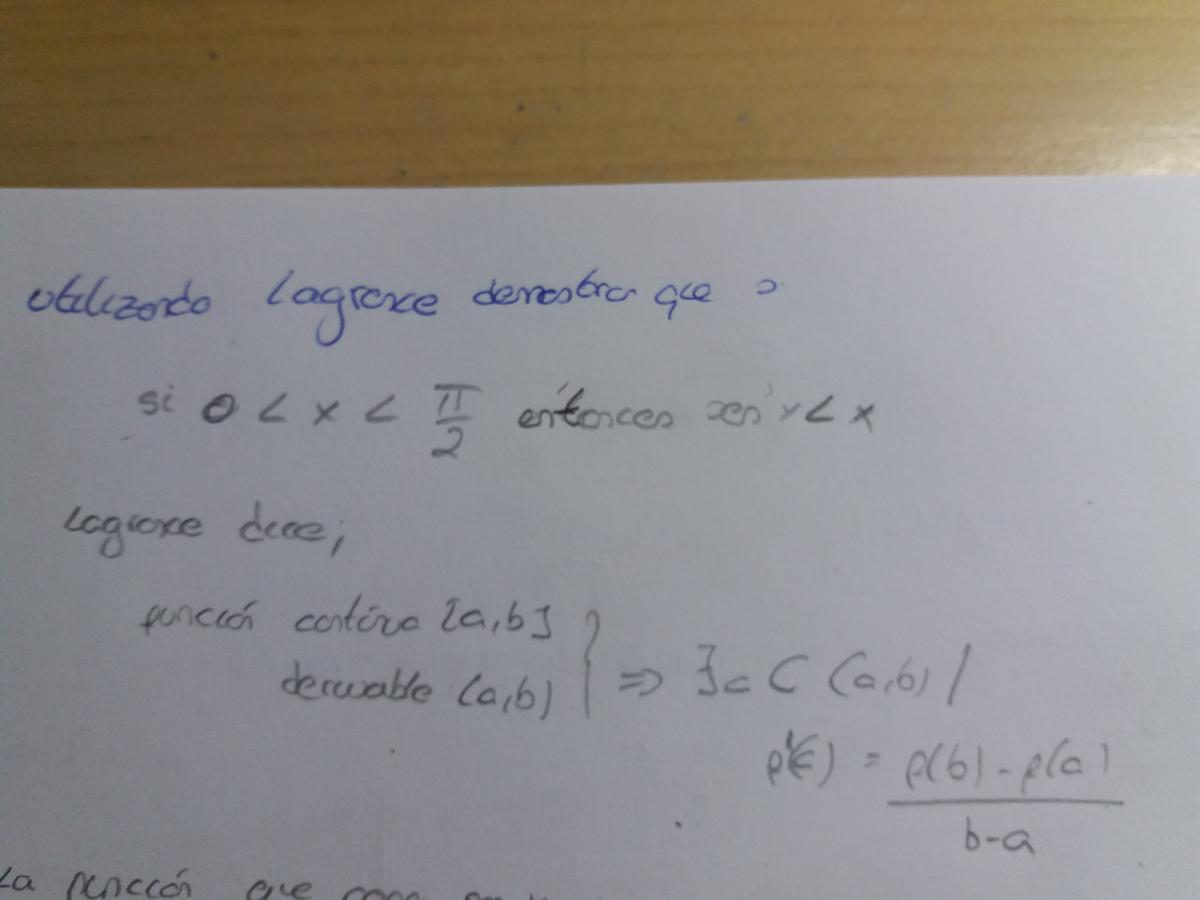 utilizando Lagrange demostrar que :
si 0 < x < π/2 entonces sen x < x
Lagrange dice;
función continua [a,b]
derivable (a,b) } => ∃c ⊂ (a,b) /
f'(c) = f(b) - f(a) / b-a
La función que